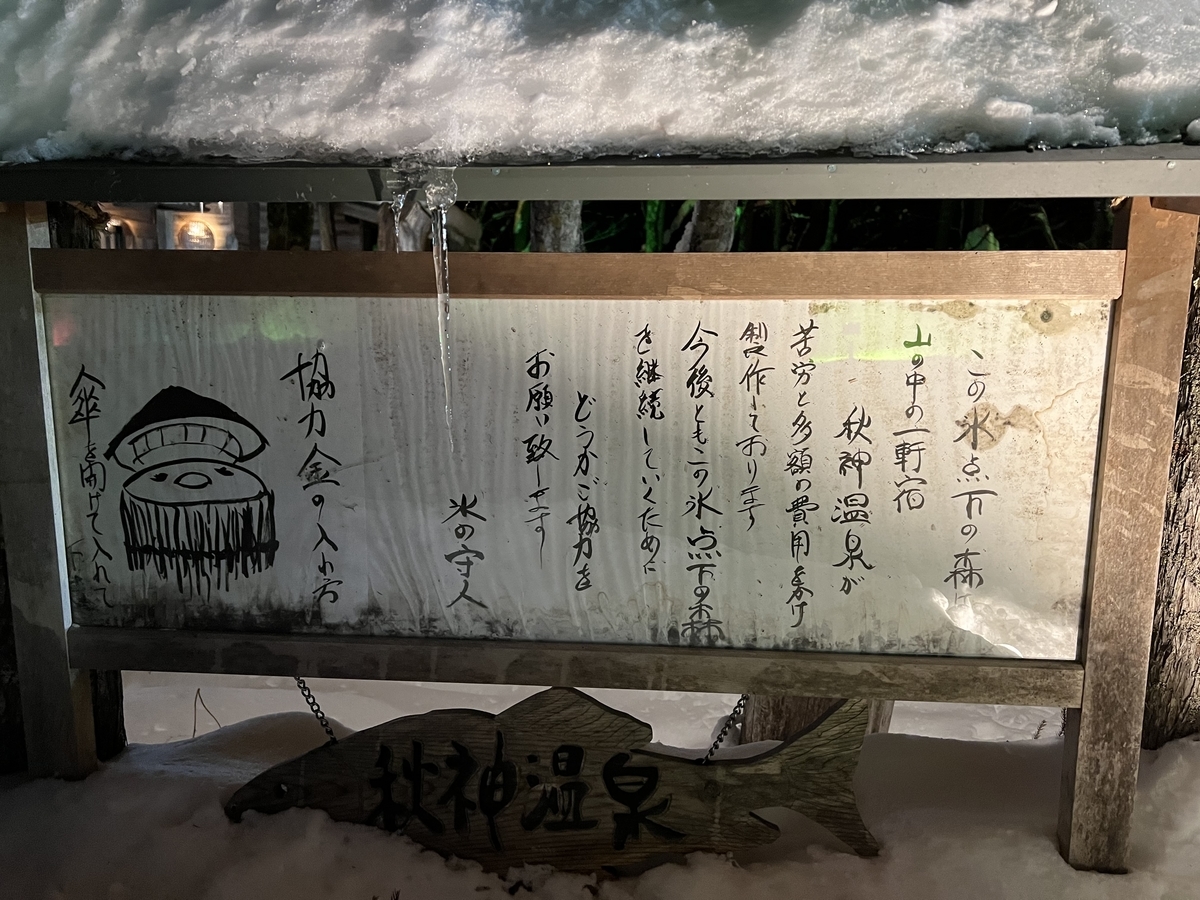 この氷点下の森は
山の中の一軒宿
秋神温泉が
苦労と多額の費用を
製作しております
今後ともこの氷点下の森
を継続していくために
どうかご協力を
お願い致します
氷の守人
協力金の入れ方
傘を開けて入れて
秋神温泉